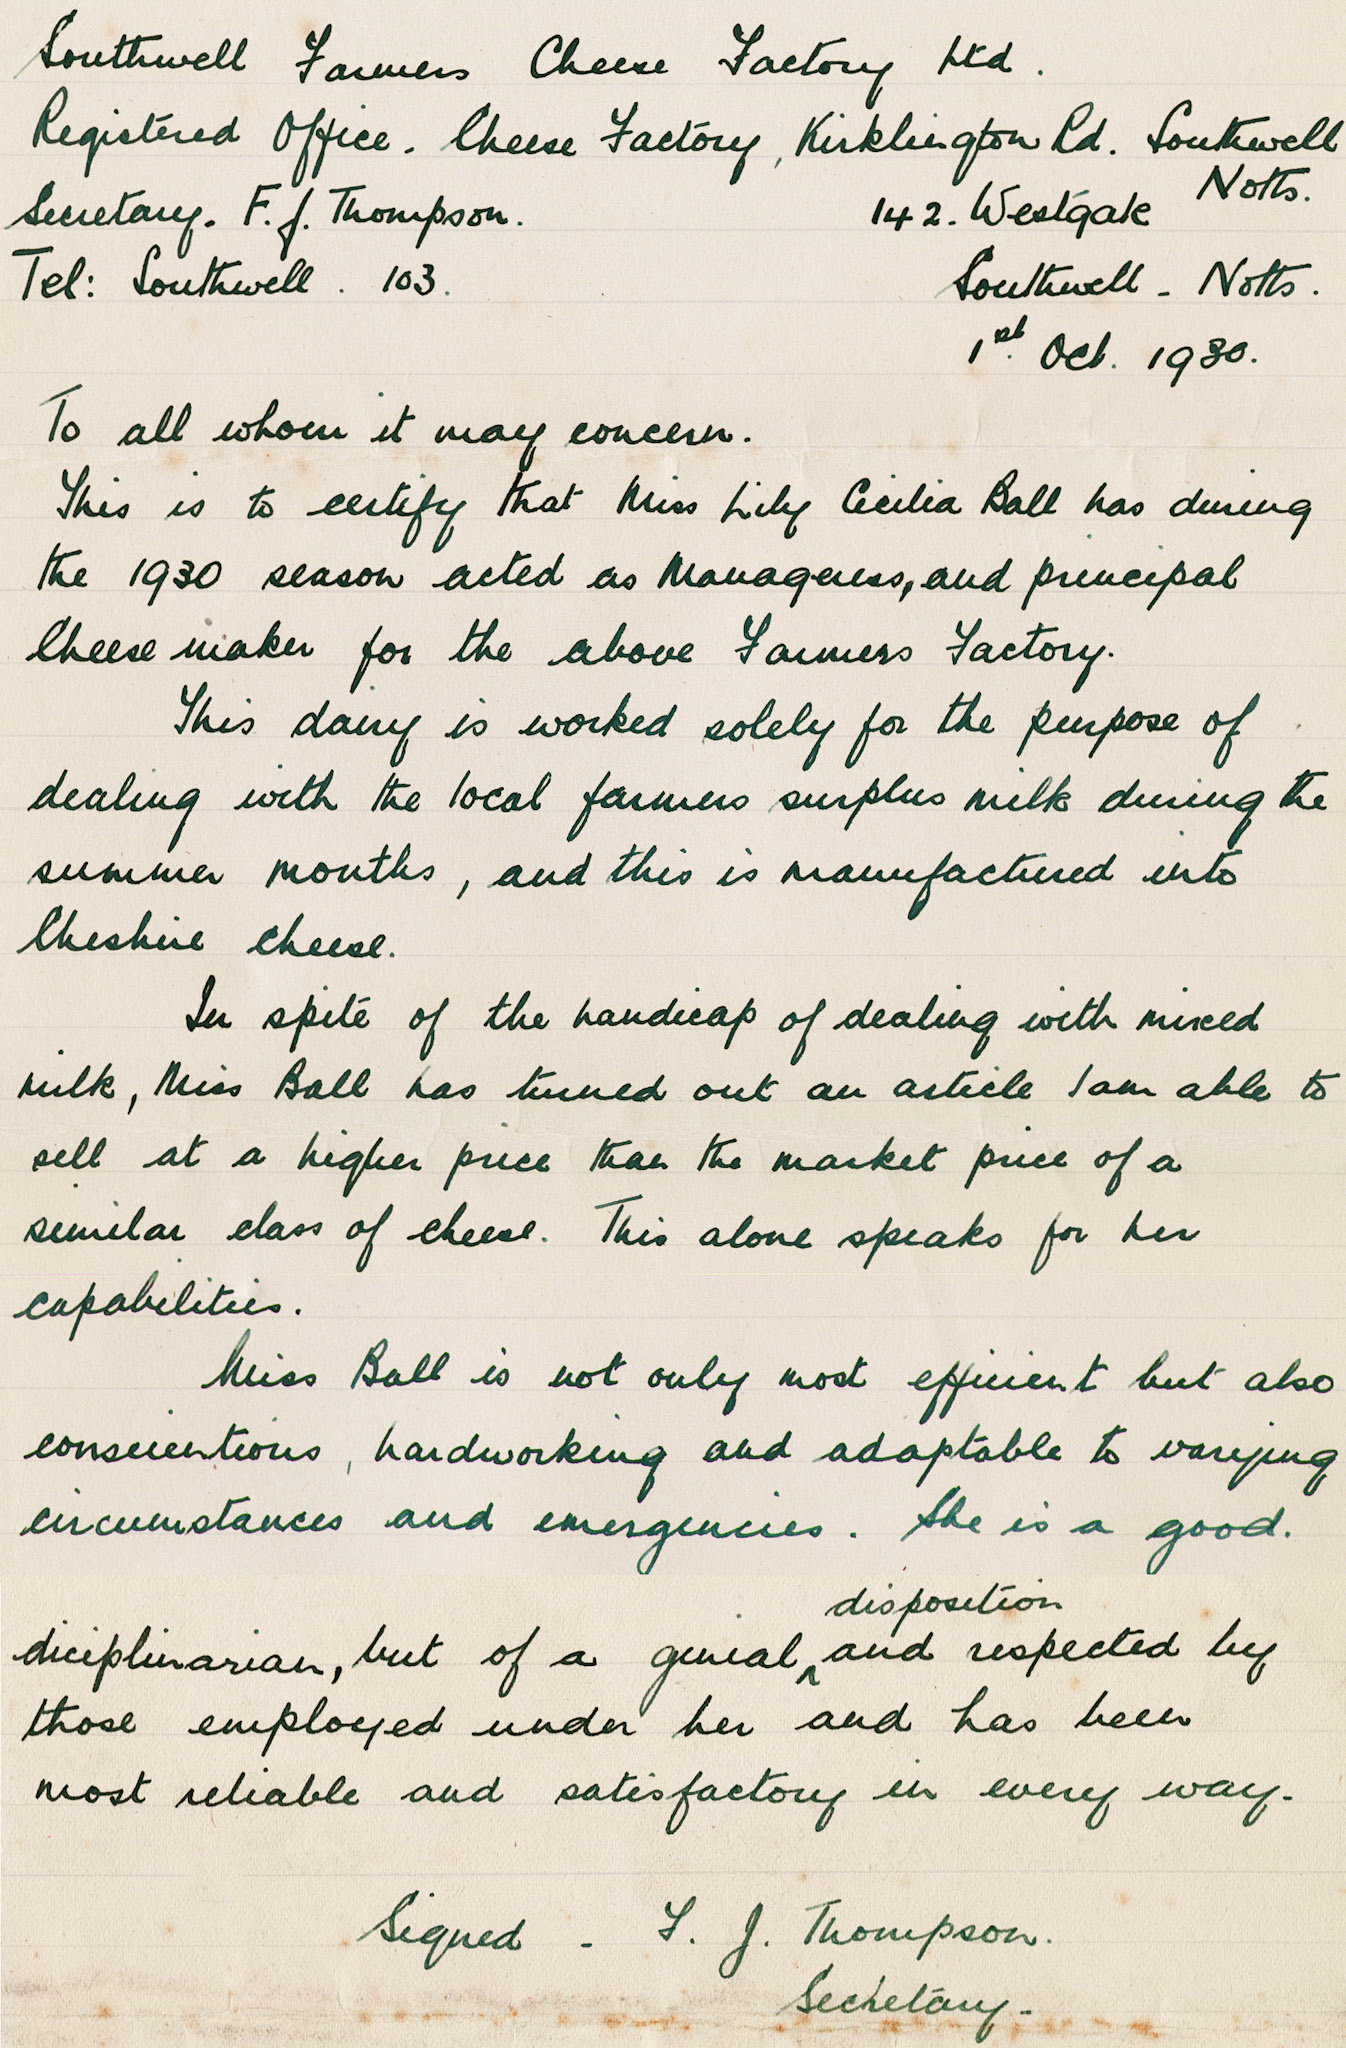 Southwell Farmers Cheese Factory Ltd.
Registered Office. Cheese Factory, Kirklington Rd. Southwell
Notts.
Secretary. F. J. Thompson.
142. Westgate
Tel: Southwell. 103.
Southwell - Notts.
1st. Oct. 1930.
To all whom it may concern.
This is to certify that Miss Lily Cicilia Ball has during
the 1930 season acted as Manageress, and principal
Cheese maker for the above Farmers Factory.
This dairy is worked solely for the purpose of
dealing with the local farmers surplus milk during the
summer months, and this is manufactured into
Cheshire cheese.
In spite of the handicap of dealing with mixed
milk, Miss Ball has turned out an article I am able to
sell at a higher price than the market price of a
similar class of cheese. This alone speaks for her
capabilities.
Miss Ball is not only most efficient but also
conscientious, hardworking and adaptable to varying
circumstances and emergencies. She is a good.
disposition
diciplinarian, but of a genial ^ and respected by
those employed under her and has been
most reliable and satisfactory in every way.
Signed - F. J. Thompson.
Secretary.